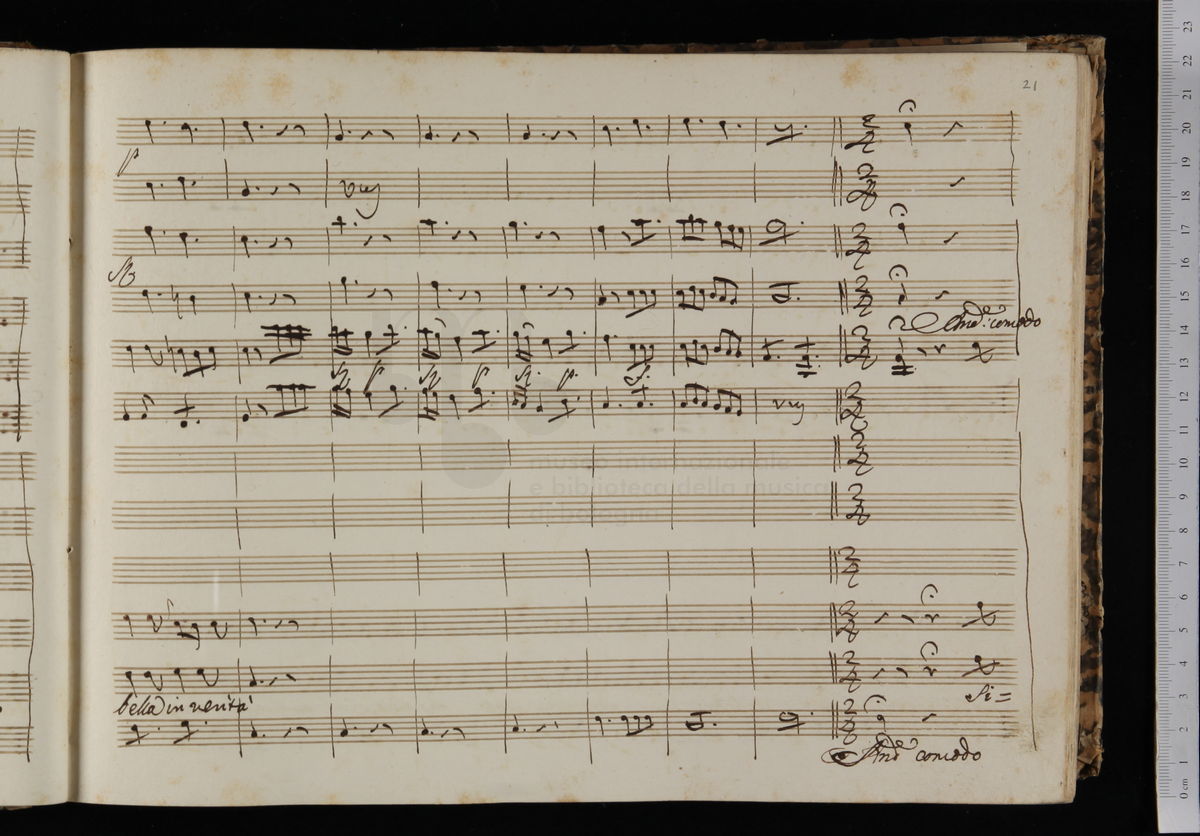 21
And.e comodo
bella in verità
Si=
And.e comodo
museo internazionale
e biblioteca della musica
di bologna
23
22
21
20
19
18
17
16
15
14
13
12
11
10
9
8
7
6
5
4
3
2
1
0 cm